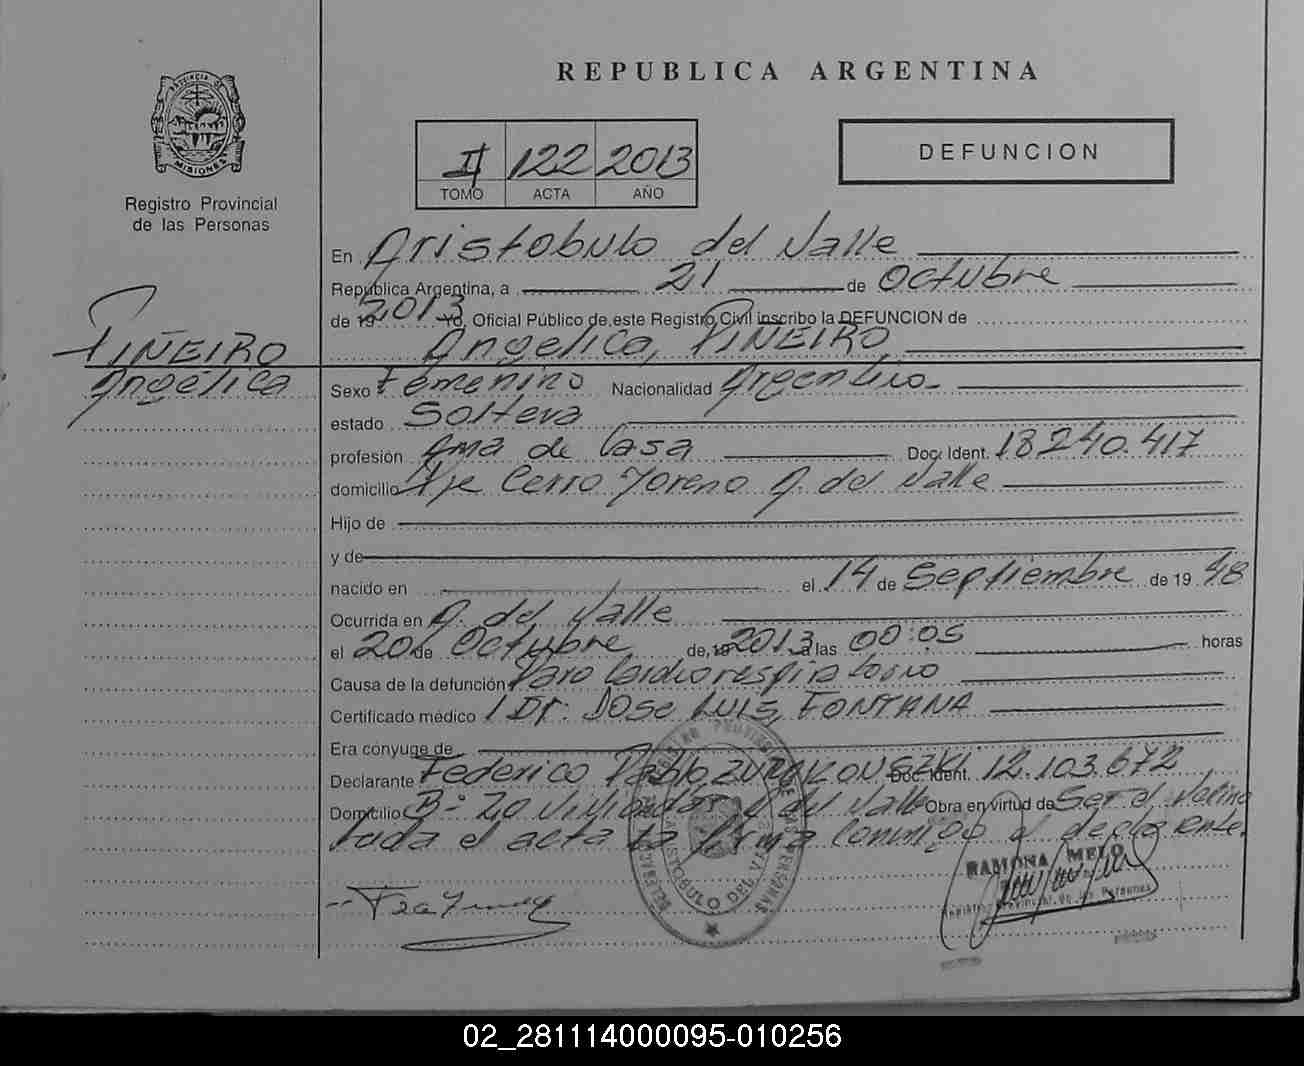 REPUBLICA ARGENTINA
PROVINCIA DE MISIONES
Registro Provincial
de las Personas
II 122 2013
TOMO ACTA AÑO
DEFUNCION
En Aristobulo del Valle
Republica Argentina, a 21 de Octubre
de 19 2013 Yo, Oficial Público de este Registro Civil inscribo la DEFUNCION de
Angelica, PIÑEIRO
PIÑEIRO
Angélica
Sexo Femenino Nacionalidad Argentina
estado Soltera
profesión Ama de Casa Doc. Ident. 18240.417
domicilio Pje Cerro Moreno A. del Valle
Hijo de
y de
nacido en el 14 de Septiembre de 19 48
Ocurrida en A. del Valle
el 20 de Octubre de 19 2013 a las 00:05 horas
Causa de la defunción Paro Cardiorespiratorio
Certificado médico Dr. Jose LUIS, FONTANA
Era cónyuge de
Declarante Federico Pablo Doc. Ident. 12.103.672
Domicilio B° 20 Viviendas A. del Valle Obra en virtud de Ser el Vecino
el acta la firma Conmigo el declarante
REGISTRO PROVINCIAL DE LAS PERSONAS
DELEGACION
ARISTOBULO DEL VALLE
RAMONA MELO
Registro Provincial de las Personas
02_281114000095-010256